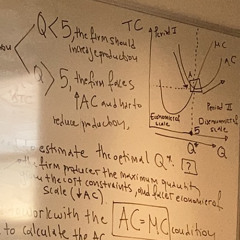 Q < 5, the firm should
increase production
Q > 5, the firm faces
↑AC and has to
reduce production.
TC
Period I
MC
AC
A
Economies of
scale
Period II
Diseconomies of
scale
5
Q* Q
estimate the optimal Q*. ?
the firm produces the maximum quantity
the cost constraints, and faces economies of
scale (↓AC)
work with the
AC = MC condition
to calculate the AC